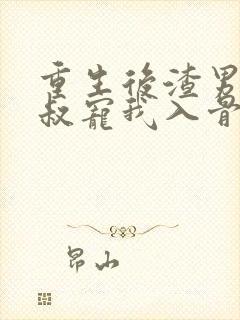 重生後渣男
叔寵我入骨
昂山